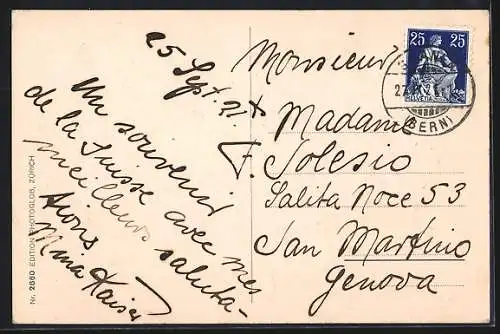 25 Sept. 21.
Un souvenir
de la Suisse avec mes
meilleures saluta-
tions
Mina Kaiser
Monsieur
& Madame
F. Solesio
Salita Noce 53
San Martino
Genova
25 25
HELVETIA
(BERN)
Nr. 2860 EDITION PHOTOGLOB, ZÜRICH